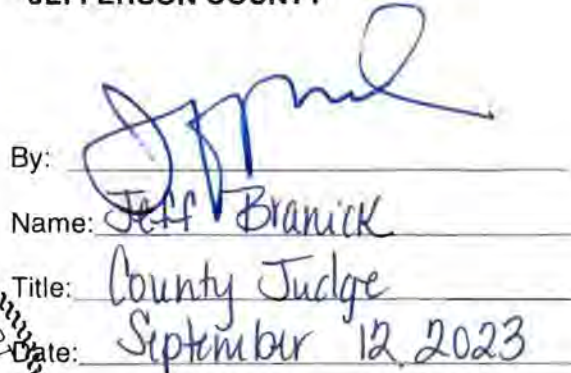 JEFFERSON COUNTY
By:
Name: Jeff Branick
Title: County Judge
Date: September 12, 2023